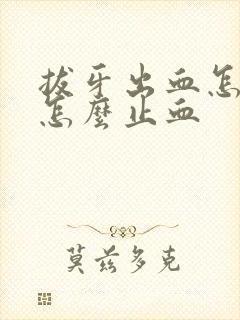 拔牙出血怎
怎麼止血
莫兹多克